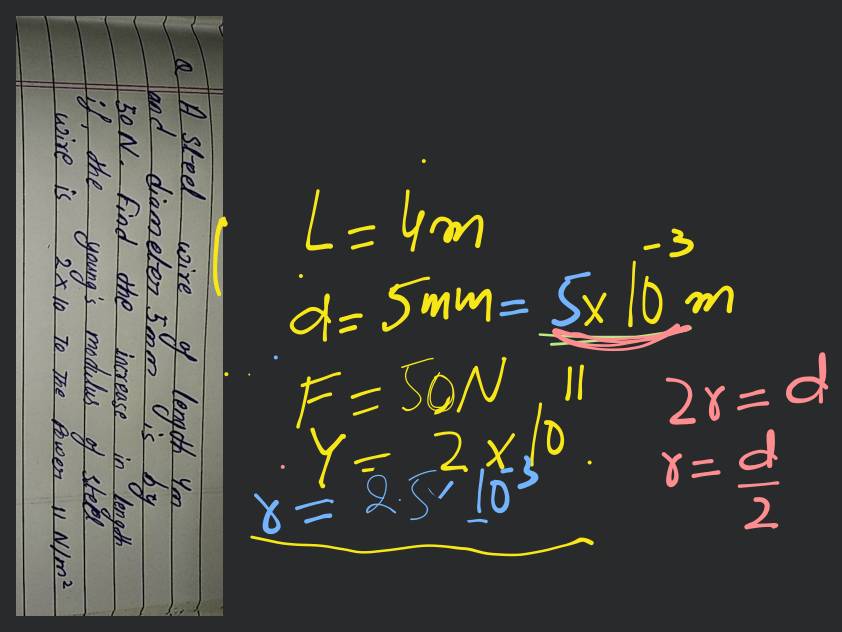 Q A steel wire of length 4m
and diameter 5mm is by
50N. Find the increase in length
if, the young's modulus of steel
wire is 2x10 To The Power 11 N/m²
L = 4m
d = 5mm = 5x10⁻³ m
F = 50N
Y = 2 x 10¹¹
r = 2.5x10⁻³
2r = d
r = d/2